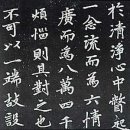 於清淨心中瞥起
一念流而為六情
廣而為八萬四千
煩惱則其對之也
不可以一端故設